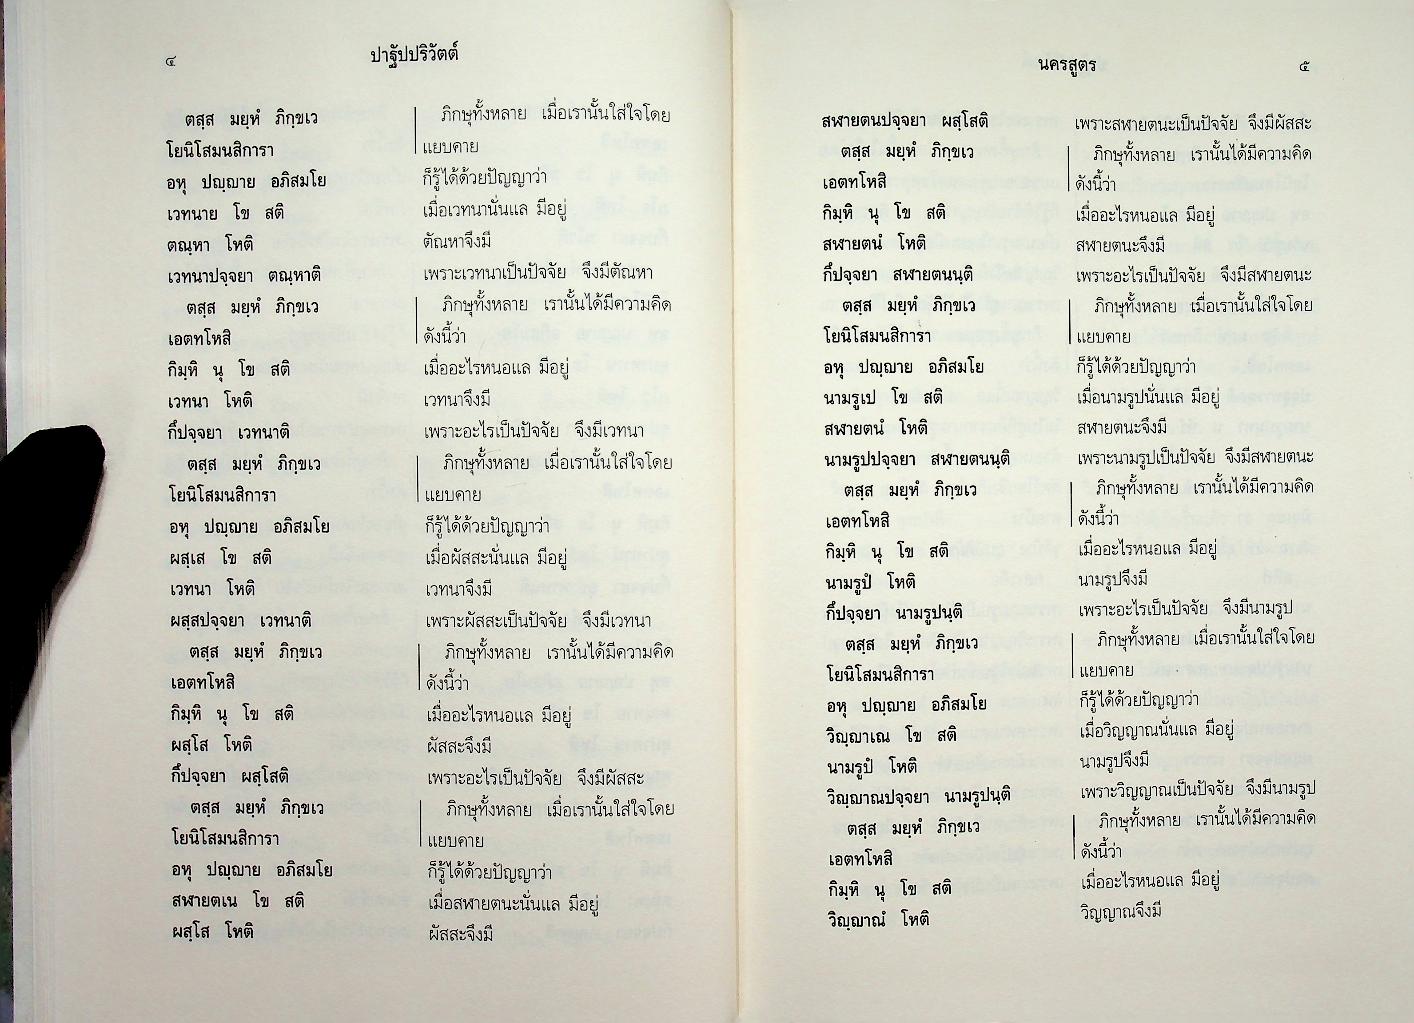 ๔ ปาฐัปปริวัตต์
ตสฺส มยฺหํ ภิกฺขเว ภิกษุทั้งหลาย เมื่อเรานั้นใส่ใจโดย
โยนิโสมนสิการา แยบคาย
อหุ ปญฺญาย อภิสมโย ก็รู้ได้ด้วยปัญญาว่า
เวทนาย โข สติ เมื่อเวทนานั่นแล มีอยู่
ตณฺหา โหติ ตัณหาจึงมี
เวทนาปจฺจยา ตณฺหาติ เพราะเวทนาเป็นปัจจัย จึงมีตัณหา
ตสฺส มยฺหํ ภิกฺขเว ภิกษุทั้งหลาย เรานั้นได้มีความคิด
เอตทโหสิ ดังนี้ว่า
กิมฺหิ นุ โข สติ เมื่ออะไรหนอแล มีอยู่
เวทนา โหติ เวทนาจึงมี
กึปจฺจยา เวทนาติ เพราะอะไรเป็นปัจจัย จึงมีเวทนา
ตสฺส มยฺหํ ภิกฺขเว ภิกษุทั้งหลาย เมื่อเรานั้นใส่ใจโดย
โยนิโสมนสิการา แยบคาย
อหุ ปญฺญาย อภิสมโย ก็รู้ได้ด้วยปัญญาว่า
ผสฺเส โข สติ เมื่อผัสสะนั่นแล มีอยู่
เวทนา โหติ เวทนาจึงมี
ผสฺสปจฺจยา เวทนาติ เพราะผัสสะเป็นปัจจัย จึงมีเวทนา
ตสฺส มยฺหํ ภิกฺขเว ภิกษุทั้งหลาย เรานั้นได้มีความคิด
เอตทโหสิ ดังนี้ว่า
กิมฺหิ นุ โข สติ เมื่ออะไรหนอแล มีอยู่
ผสฺโส โหติ ผัสสะจึงมี
กึปจฺจยา ผสฺโสติ เพราะอะไรเป็นปัจจัย จึงมีผัสสะ
ตสฺส มยฺหํ ภิกฺขเว ภิกษุทั้งหลาย เมื่อเรานั้นใส่ใจโดย
โยนิโสมนสิการา แยบคาย
อหุ ปญฺญาย อภิสมโย ก็รู้ได้ด้วยปัญญาว่า
สฬายตเน โข สติ เมื่อสฬายตนะนั่นแล มีอยู่
ผสฺโส โหติ ผัสสะจึงมี
นครสูตร ๕
สฬายตนปจฺจยา ผสฺโสติ เพราะสฬายตนะเป็นปัจจัย จึงมีผัสสะ
ตสฺส มยฺหํ ภิกฺขเว ภิกษุทั้งหลาย เรานั้นได้มีความคิด
เอตทโหสิ ดังนี้ว่า
กิมฺหิ นุ โข สติ เมื่ออะไรหนอแล มีอยู่
สฬายตนํ โหติ สฬายตนะจึงมี
กึปจฺจยา สฬายตนนฺติ เพราะอะไรเป็นปัจจัย จึงมีสฬายตนะ
ตสฺส มยฺหํ ภิกฺขเว ภิกษุทั้งหลาย เมื่อเรานั้นใส่ใจโดย
โยนิโสมนสิการา แยบคาย
อหุ ปญฺญาย อภิสมโย ก็รู้ได้ด้วยปัญญาว่า
นามรูเป โข สติ เมื่อนามรูปนั่นแล มีอยู่
สฬายตนํ โหติ สฬายตนะจึงมี
นามรูปปจฺจยา สฬายตนนฺติ เพราะนามรูปเป็นปัจจัย จึงมีสฬายตนะ
ตสฺส มยฺหํ ภิกฺขเว ภิกษุทั้งหลาย เรานั้นได้มีความคิด
เอตทโหสิ ดังนี้ว่า
กิมฺหิ นุ โข สติ เมื่ออะไรหนอแล มีอยู่
นามรูปํ โหติ นามรูปจึงมี
กึปจฺจยา นามรูปนฺติ เพราะอะไรเป็นปัจจัย จึงมีนามรูป
ตสฺส มยฺหํ ภิกฺขเว ภิกษุทั้งหลาย เมื่อเรานั้นใส่ใจโดย
โยนิโสมนสิการา แยบคาย
อหุ ปญฺญาย อภิสมโย ก็รู้ได้ด้วยปัญญาว่า
วิญฺญาเณ โข สติ เมื่อวิญญาณนั่นแล มีอยู่
นามรูปํ โหติ นามรูปจึงมี
วิญฺญาณปจฺจยา นามรูปนฺติ เพราะวิญญาณเป็นปัจจัย จึงมีนามรูป
ตสฺส มยฺหํ ภิกฺขเว ภิกษุทั้งหลาย เรานั้นได้มีความคิด
เอตทโหสิ ดังนี้ว่า
กิมฺหิ นุ โข สติ เมื่ออะไรหนอแล มีอยู่
วิญฺญาณํ โหติ วิญญาณจึงมี